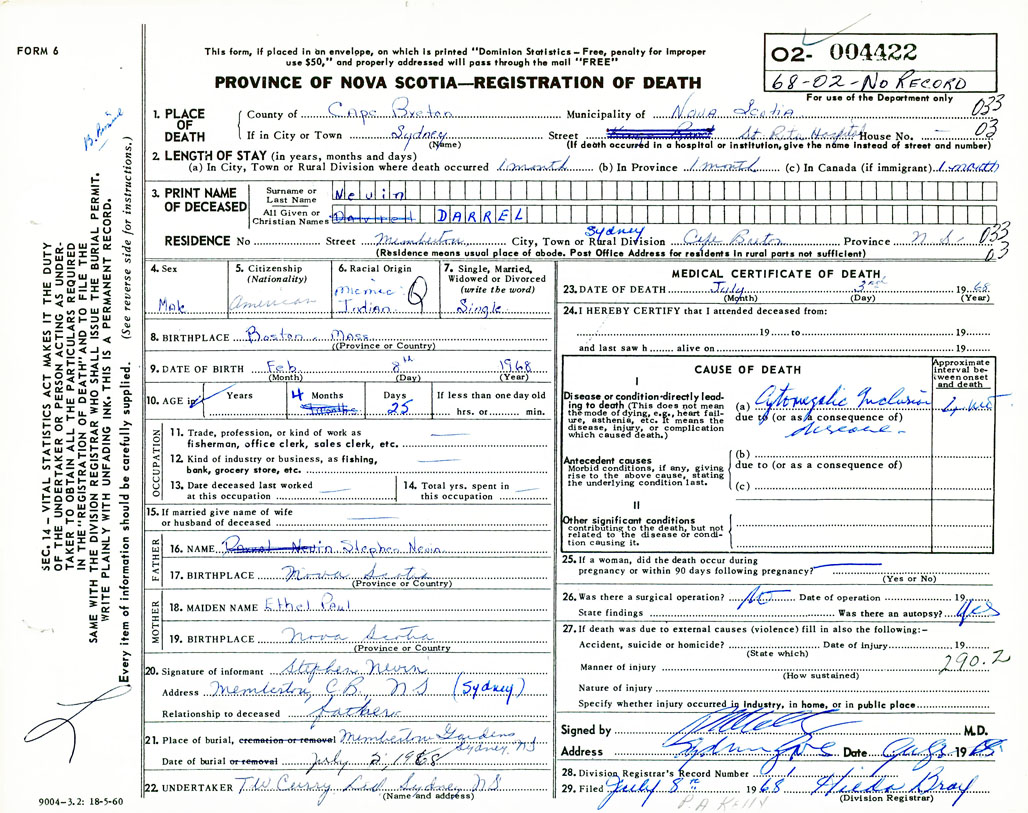 FORM 6
This form, if placed in an envelope, on which is printed "Dominion Statistics – Free, penalty for improper
use $50," and properly addressed will pass through the mail "FREE"
PROVINCE OF NOVA SCOTIA—REGISTRATION OF DEATH
02- 004422
68-02-No RECORD
For use of the Department only
1. PLACE OF DEATH
County of Cape Breton Municipality of Nova Scotia 033
If in City or Town Sydney Street St Rita Hospital House No. – 03
(Name) (If death occurred in a hospital or institution, give the name instead of street and number)
2. LENGTH OF STAY (in years, months and days)
(a) In City, Town or Rural Division where death occurred 1 month (b) In Province 1 month (c) In Canada (if immigrant) 1 month
3. PRINT NAME OF DECEASED
Surname or Last Name Nevin
All Given or Christian Names DARREL
RESIDENCE No Street Memberton City, Town or Rural Division Sydney Cape Breton Province N S. 033
(Residence means usual place of abode. Post Office Address for residents in rural parts not sufficient) 03
4. Sex
Male
5. Citizenship
(Nationality)
American
6. Racial Origin
Micmac
Indian
7. Single, Married, Widowed or Divorced
(write the word)
Single
8. BIRTHPLACE Boston, Mass
(Province or Country)
9. DATE OF BIRTH Feb 8th 1968
(Month) (Day) (Year)
10. AGE in Years 4 Months Days 25 If less than one day old
hrs. or min.
OCCUPATION
11. Trade, profession, or kind of work as
fisherman, office clerk, sales clerk, etc.
12. Kind of industry or business, as fishing,
bank, grocery store, etc.
13. Date deceased last worked
at this occupation
14. Total yrs. spent in
this occupation
15. If married give name of wife
or husband of deceased
FATHER
16. NAME Darrel Nevin Stephen Nevin
17. BIRTHPLACE Nova Scotia
(Province or Country)
MOTHER
18. MAIDEN NAME Ethel Paul
19. BIRTHPLACE Nova Scotia
(Province or Country)
20. Signature of informant Stephen Nevin
Address Memberton, C.B., N S (Sydney)
Relationship to deceased father
21. Place of burial, cremation or removal Memberton Gardens
Sydney NS
Date of burial or removal July 2, 1968
22. UNDERTAKER T W Curry Ltd Sydney N S
(Name and address)
9004–3.2: 18-5-60
MEDICAL CERTIFICATE OF DEATH
23. DATE OF DEATH July 3rd 1968
(Month) (Day) (Year)
24. I HEREBY CERTIFY that I attended deceased from:
19 to 19
and last saw h alive on 19
CAUSE OF DEATH
Approximate interval between onset and death
I
Disease or condition directly leading to death (This does not mean the mode of dying, e.g., heart failure, asthenia, etc. It means the disease, injury, or complication which caused death.)
(a) Cytomegalic Inclusion
due to (or as a consequence of)
disease
Antecedent causes
Morbid conditions, if any, giving rise to the above cause, stating the underlying condition last.
(b)
due to (or as a consequence of)
(c)
II
Other significant conditions
contributing to the death, but not related to the disease or condition causing it.
25. If a woman, did the death occur during
pregnancy or within 90 days following pregnancy?
(Yes or No)
26. Was there a surgical operation? No Date of operation 19
State findings Was there an autopsy? Yes
27. If death was due to external causes (violence) fill in also the following:–
Accident, suicide or homicide? Date of injury 19
(State which)
290.2
Manner of injury
(How sustained)
Nature of injury
Specify whether injury occurred in Industry, in home, or in public place
Signed by M.D.
Address Date Aug 5 1968
28. Division Registrar's Record Number
29. Filed July 8th 1968 Hilda Bray
(Division Registrar)
P.A Kelly
SEC. 14 – VITAL STATISTICS ACT MAKES IT THE DUTY
OF THE UNDERTAKER OR PERSON ACTING AS UNDER-
TAKER TO OBTAIN ALL THE PARTICULARS REQUIRED
IN THE "REGISTRATION OF DEATH" AND TO FILE THE
SAME WITH THE DIVISION REGISTRAR WHO SHALL ISSUE THE BURIAL PERMIT.
WRITE PLAINLY WITH UNFADING INK. THIS IS A PERMANENT RECORD.
Every item of information should be carefully supplied. (See reverse side for instructions.)